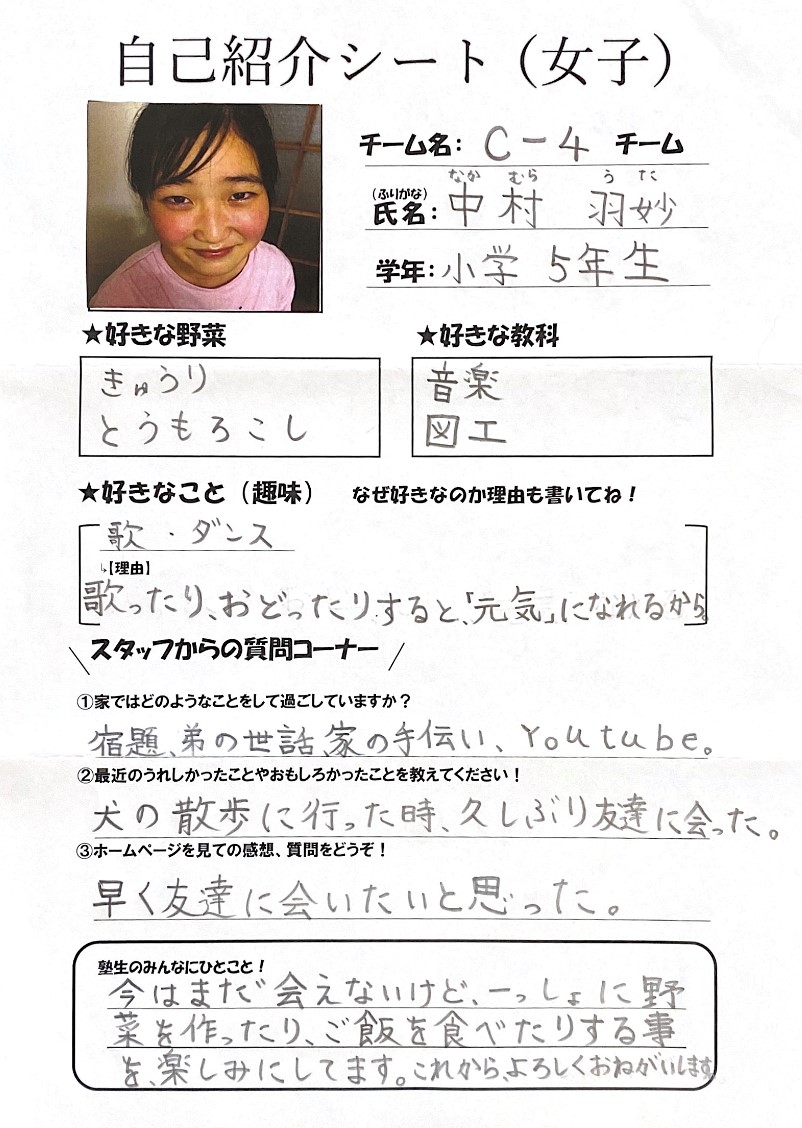 自己紹介シート（女子）
チーム名： C－4 チーム
（ふりがな） なか むら う た
氏名： 中村 羽妙
学年： 小学 5年生
★好きな野菜
きゅうり
とうもろこし
★好きな教科
音楽
図工
★好きなこと（趣味） なぜ好きなのか理由も書いてね！
歌・ダンス
↳【理由】
歌ったり、おどったりすると、「元気」になれるから。
＼スタッフからの質問コーナー／
①家ではどのようなことをして過ごしていますか？
宿題、弟の世話、家の手伝い、Youtube。
②最近のうれしかったことやおもしろかったことを教えてください！
犬の散歩に行った時、久しぶり友達に会った。
③ホームページを見ての感想、質問をどうぞ！
早く友達に会いたいと思った。
塾生のみんなにひとこと！
今はまだ会えないけど、一っしょに野
菜を作ったり、ご飯を食べたりする事
を、楽しみにしてます。これから、よろしくおねがいします。